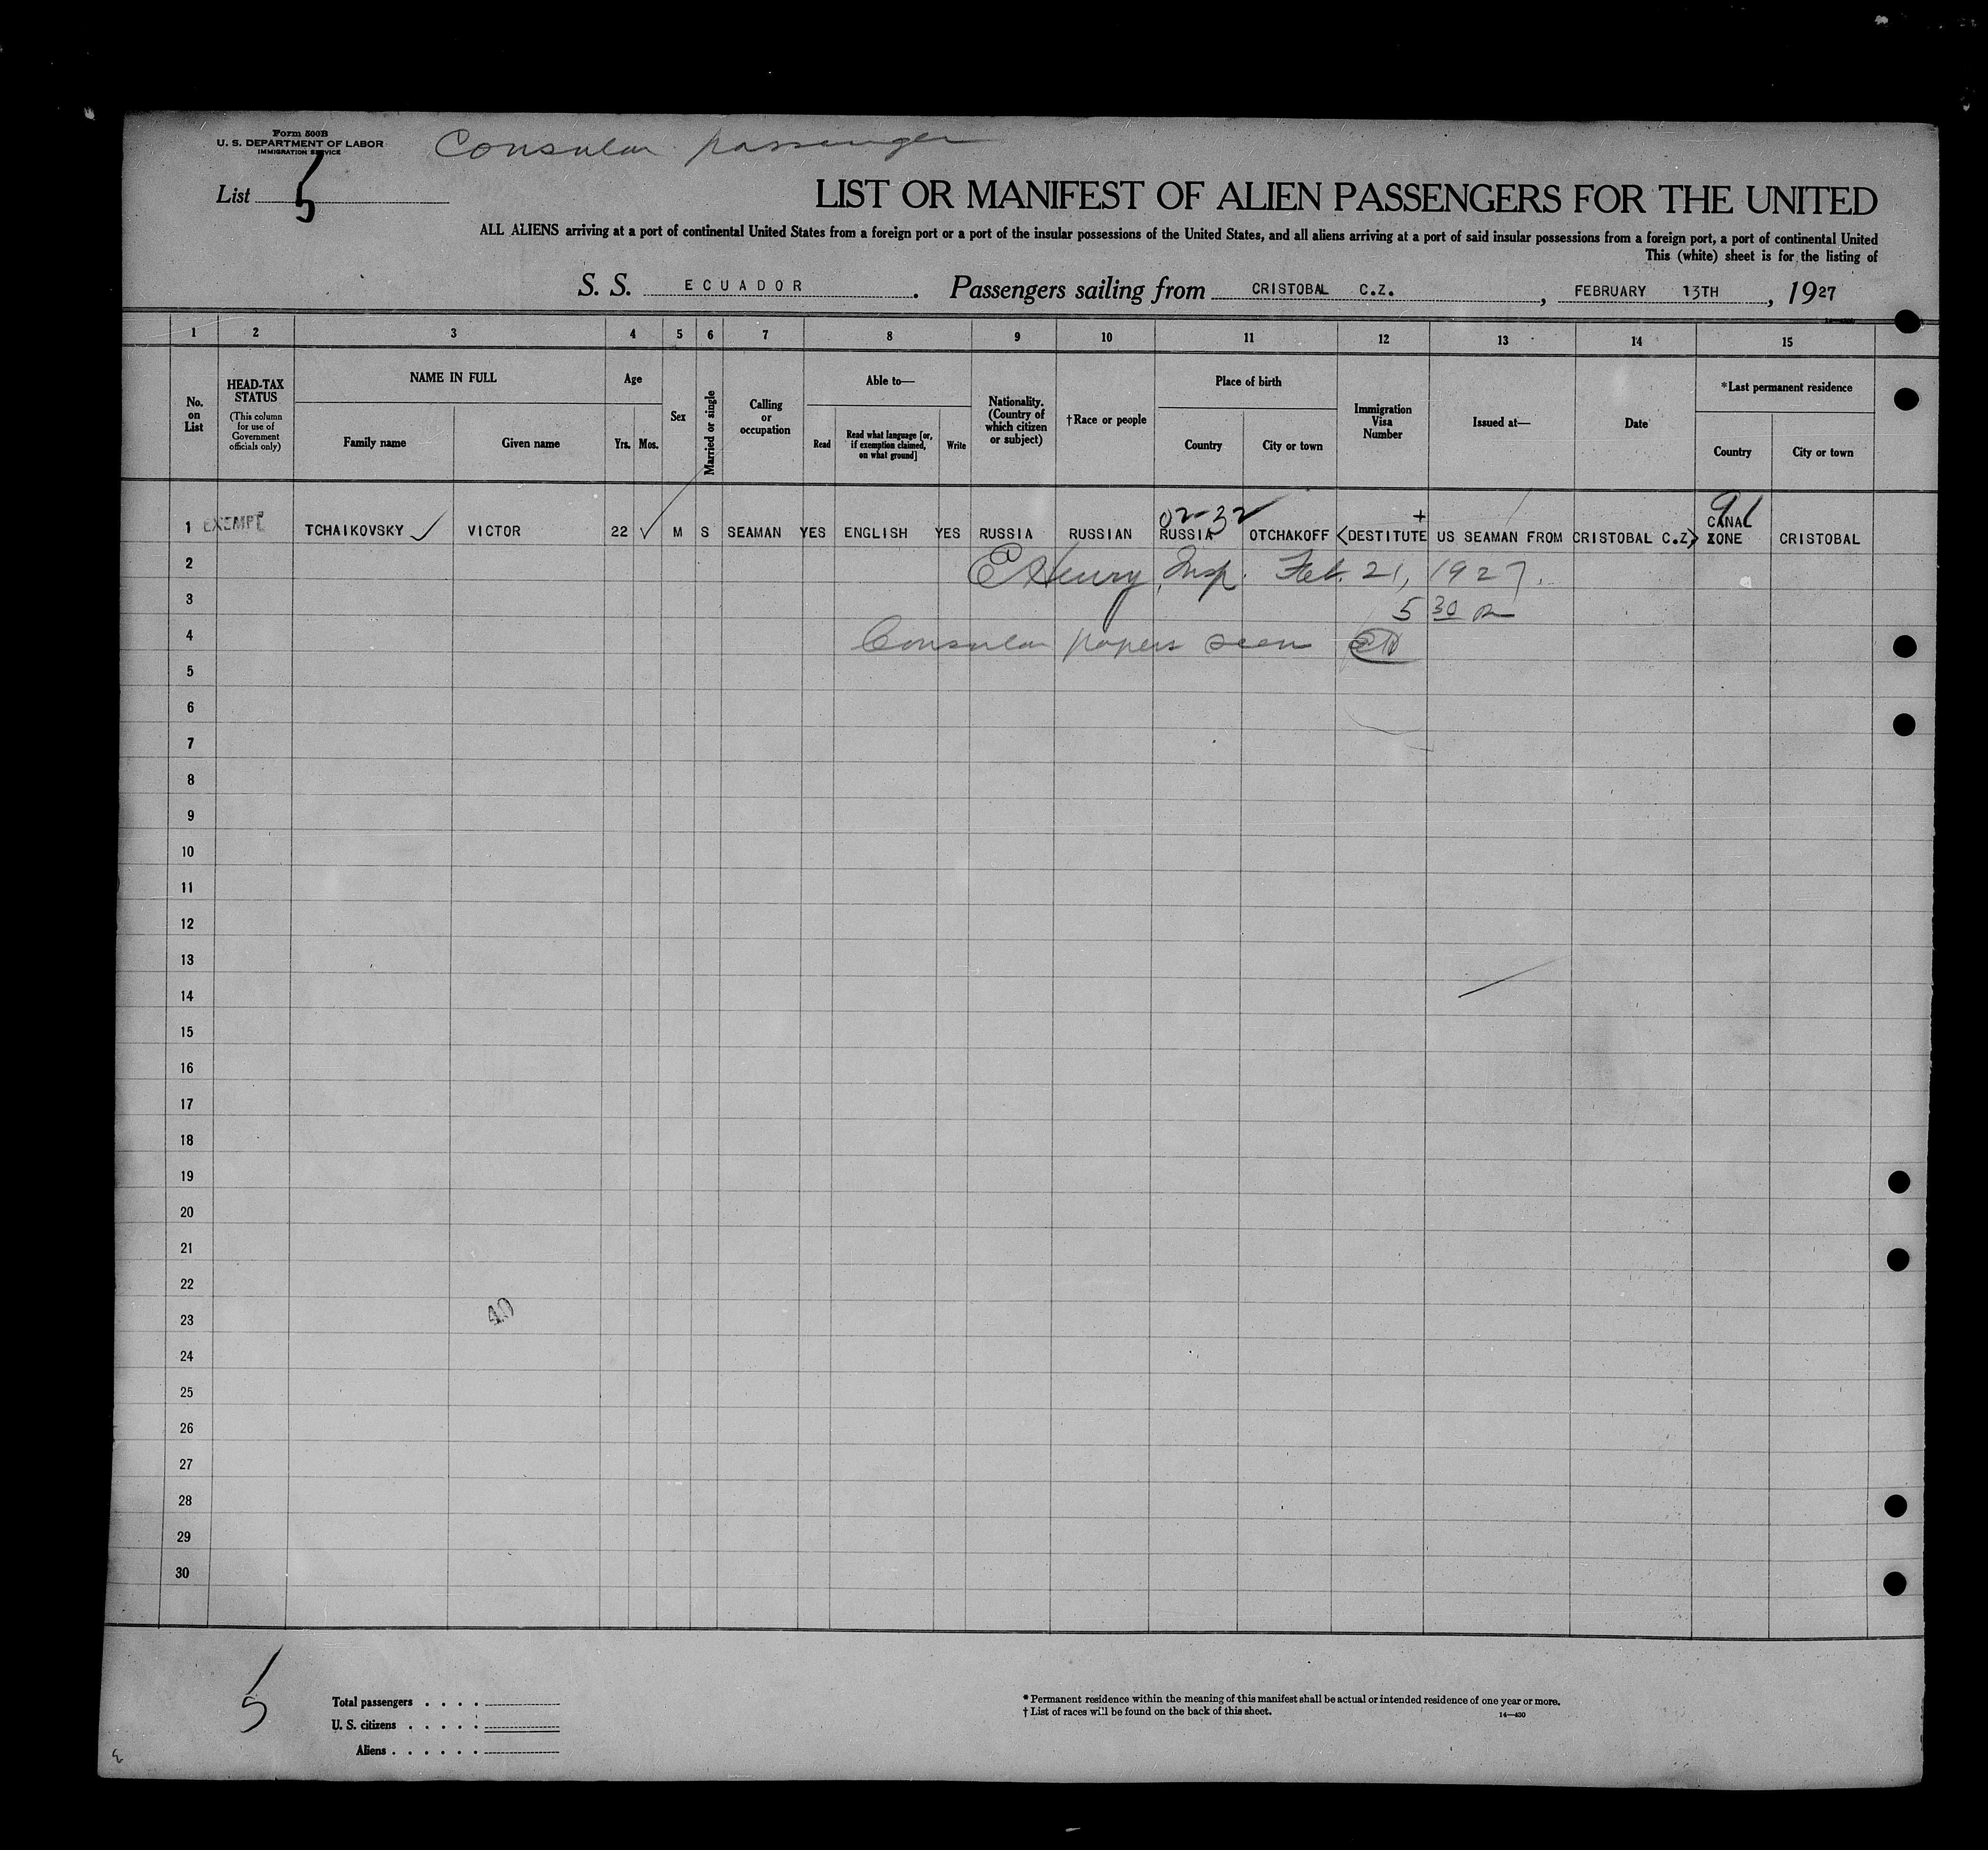 Form 500B
U. S. DEPARTMENT OF LABOR
IMMIGRATION SERVICE
Consular passenger
List 5
LIST OR MANIFEST OF ALIEN PASSENGERS FOR THE UNITED
ALL ALIENS arriving at a port of continental United States from a foreign port or a port of the insular possessions of the United States, and all aliens arriving at a port of said insular possessions from a foreign port, a port of continental United
This (white) sheet is for the listing of
S. S. ECUADOR. Passengers sailing from CRISTOBAL C.Z., FEBRUARY 13TH, 1927
1 2 3 4 5 6 7 8 9 10 11 12 13 14 15
No. on List
HEAD-TAX STATUS
(This column for use of Government officials only)
NAME IN FULL
Family name
Given name
Age
Yrs. Mos.
Sex
Married or single
Calling or occupation
Able to—
Read
Read what language [or, if exemption claimed, on what ground]
Write
Nationality. (Country of which citizen or subject)
†Race or people
Place of birth
Country
City or town
Immigration Visa Number
Issued at—
Date
*Last permanent residence
Country
City or town
02-32
91
1 EXEMPT TCHAIKOVSKY VICTOR 22 M S SEAMAN YES ENGLISH YES RUSSIA RUSSIAN RUSSIA OTCHAKOFF <DESTITUTE US SEAMAN FROM CRISTOBAL C.Z> CANAL ZONE CRISTOBAL
2 Henry, Insp. Feb. 21, 1927.
3 5 30
4 Consular papers seen
5
6
7
8
9
10
11
12
13
14
15
16
17
18
19
20
21
22
23 40
24
25
26
27
28
29
30
5
Total passengers . . . .
U. S. citizens . . . . .
Aliens . . . . . .
* Permanent residence within the meaning of this manifest shall be actual or intended residence of one year or more.
† List of races will be found on the back of this sheet.
14—430